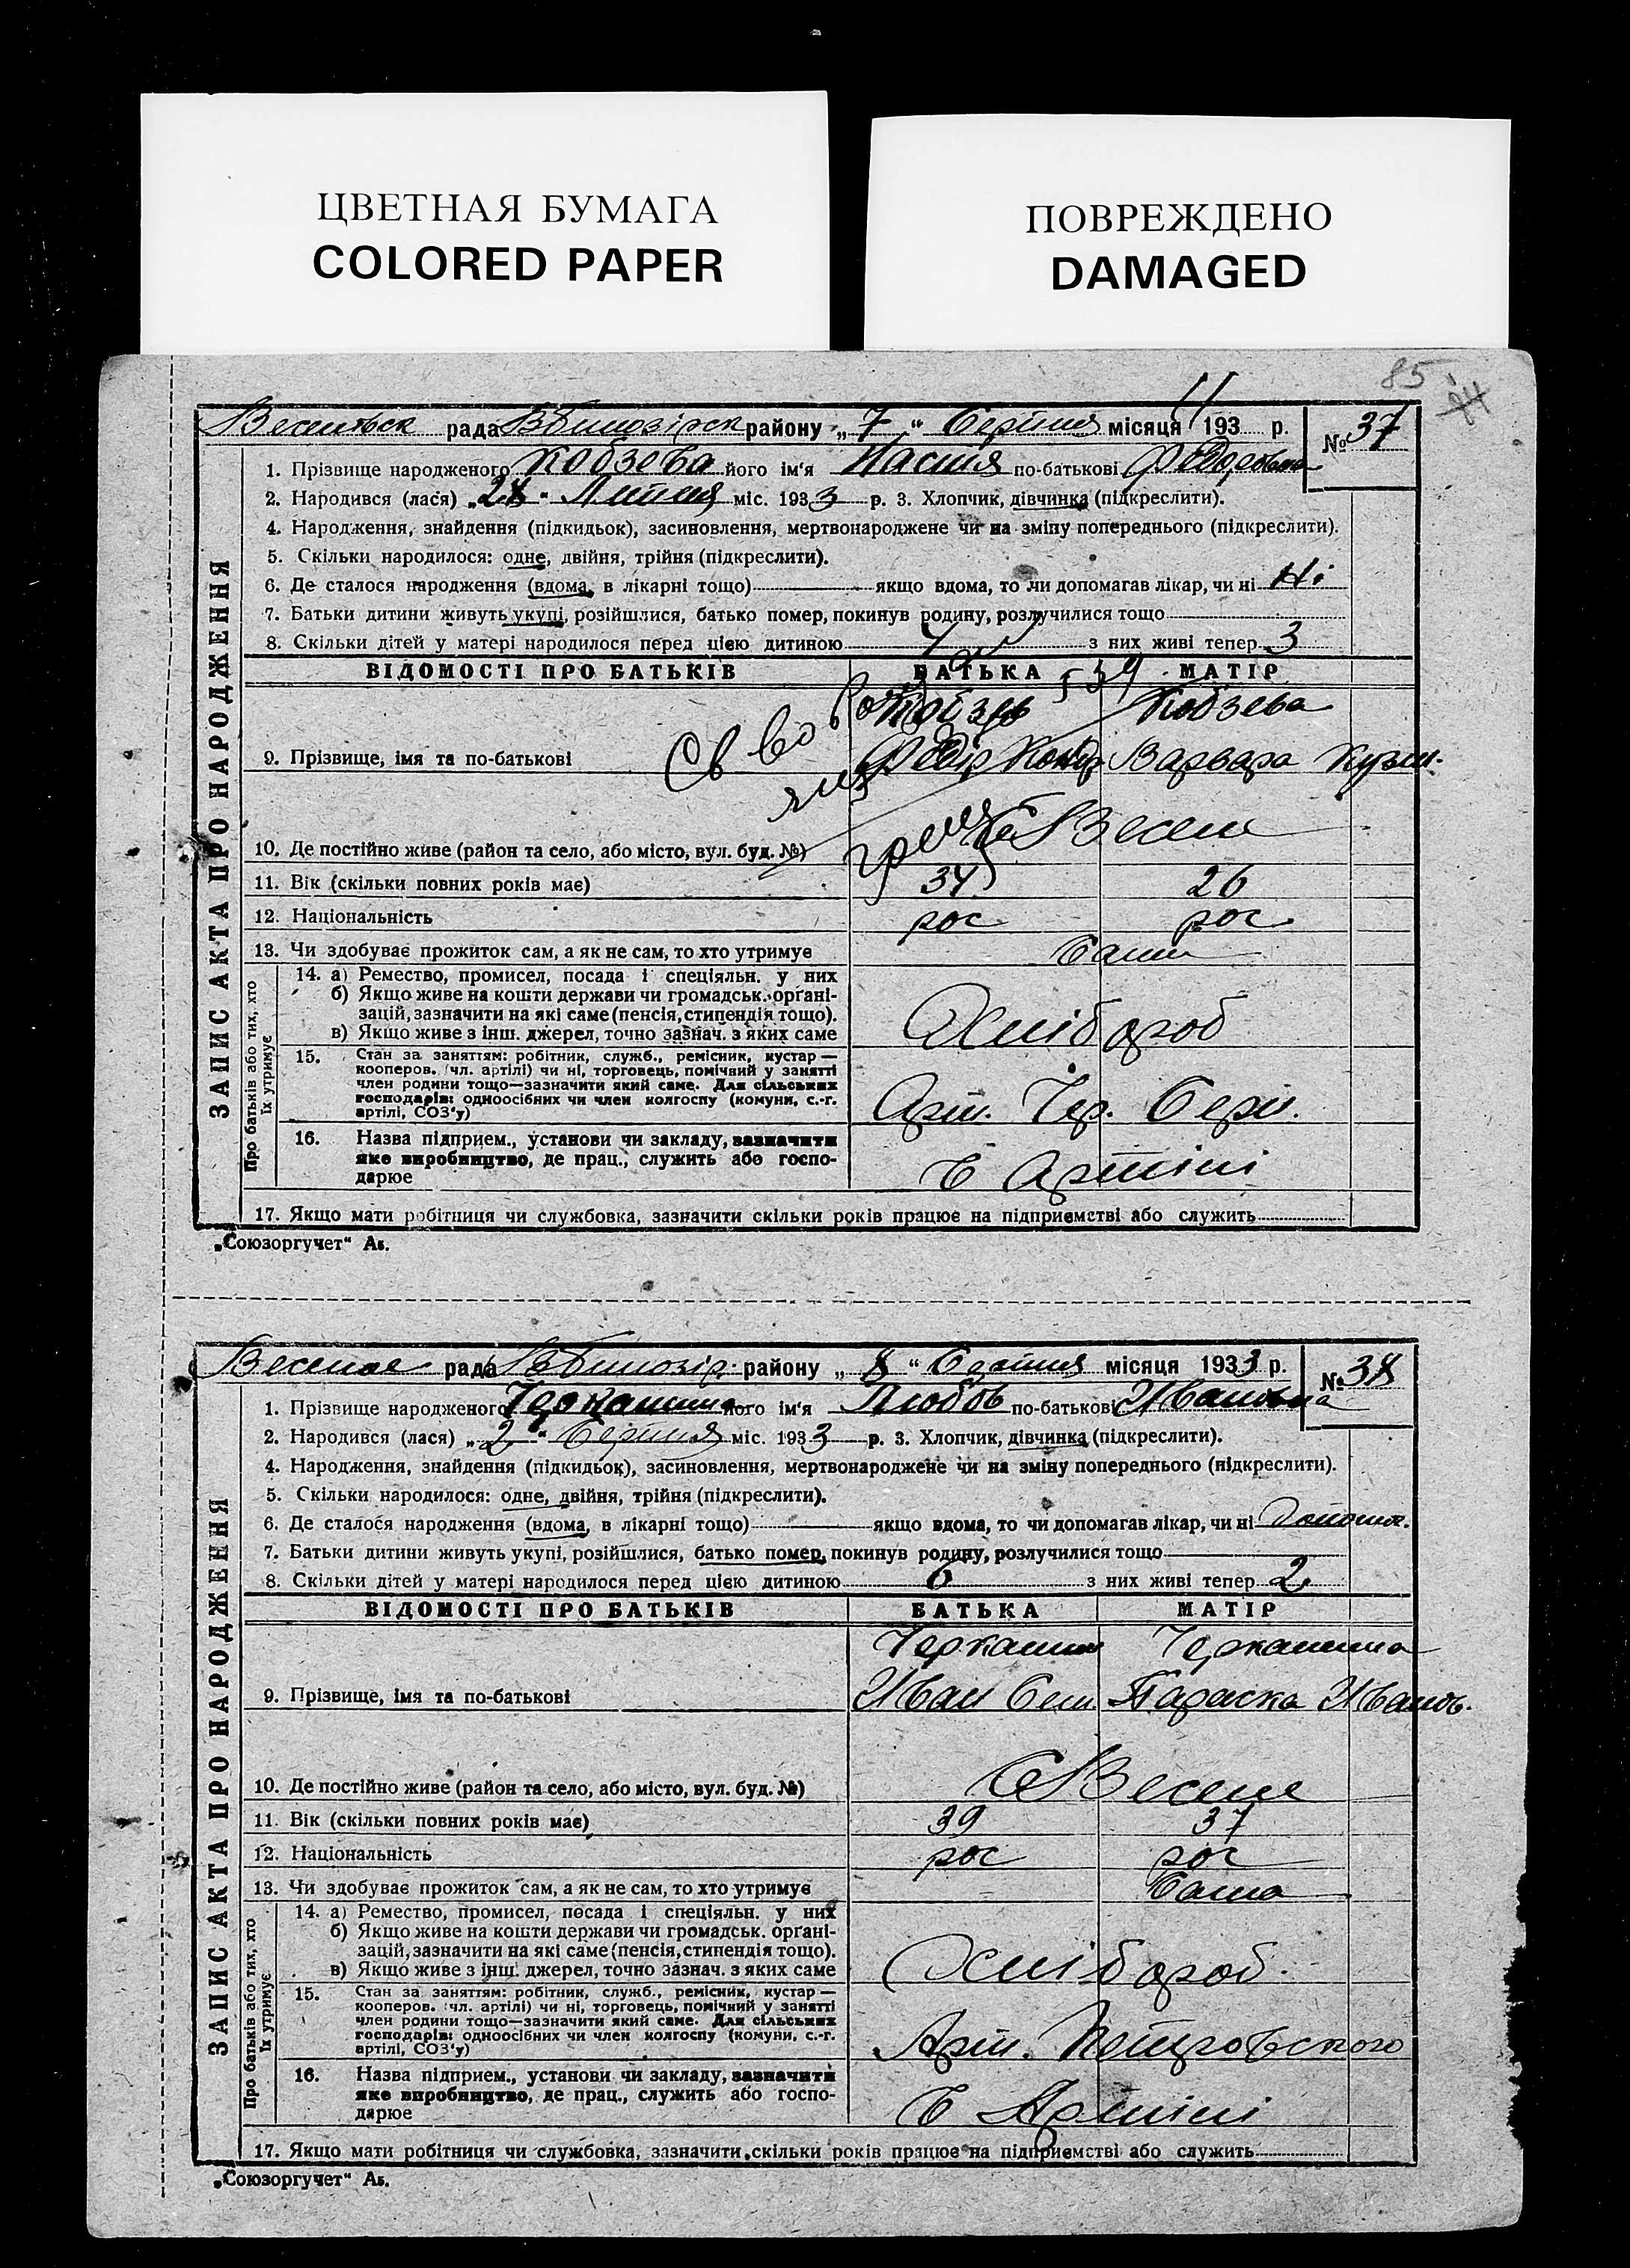 ЦВЕТНАЯ БУМАГА
COLORED PAPER
ПОВРЕЖДЕНО
DAMAGED
85
рада району „ 7 “ Серпня місяця 193 р. № 37
1. Прізвище народженого Кобзева його ім'я Настя по-батькові Федоровна
2. Народився (лася) „ 28 “ Липня міс. 193 3 р. 3. Хлопчик, дівчинка (підкреслити).
4. Народження, знайдення (підкидьок), засиновлення, мертвонароджене чи на зміну попереднього (підкреслити).
5. Скільки народилося: одне, двійня, трійня (підкреслити).
6. Де сталося народження (вдома, в лікарні тощо) якщо вдома, то чи допомагав лікар, чи ні Ні
7. Батьки дитини живуть укупі, розійшлися, батько помер, покинув родину, розлучилися тощо
8. Скільки дітей у матері народилося перед цією дитиною 4 з них живі тепер 3
ЗАПИС АКТА ПРО НАРОДЖЕННЯ
ВІДОМОСТІ ПРО БАТЬКІВ БАТЬКА МАТІР
Кобзев Кобзева
9. Прізвище, імя та по-батькові Федір Конд. Варвара Кузм.
10. Де постійно живе (район та село, або місто, вул. буд. №) с Веселе
11. Вік (скільки повних років має) 34 26
12. Національність рос рос
13. Чи здобуває прожиток сам, а як не сам, то хто утримує сами
Про батьків або тих, хто їх утримує
14. а) Ремество, промисел, посада і спеціяльн. у них
б) Якщо живе на кошти держави чи громадськ. орґані-
зацій, зазначити на які саме (пенсія, стипендія тощо).
в) Якщо живе з інш. джерел, точно зазнач. з яких саме
Хлібороб
15. Стан за заняттям: робітник, служб., ремісник, кустар—
кооперов. (чл. артілі) чи ні, торговець, помічний у занятті
член родини тощо—зазначити який саме. Для сільських
господарів: одноосібних чи член колгоспу (комуни, с.-г.
артілі, СОЗ'у)
Арт. Чер. Серп.
16. Назва підприєм., установи чи закладу, зазначити
яке виробництво, де прац., служить або госпо-
дарює
в Артілі
17. Якщо мати робітниця чи службовка, зазначити скільки років працює на підприємстві або служить
„Союзоргучет“ Аь.
рада району „ 8 “ Серпня місяця 193 3 р. № 38
1. Прізвище народженого Черкашина його ім'я Любов по-батькові Ивановна
2. Народився (лася) „ 2 “ Серпня міс. 193 3 р. 3. Хлопчик, дівчинка (підкреслити).
4. Народження, знайдення (підкидьок), засиновлення, мертвонароджене чи на зміну попереднього (підкреслити).
5. Скільки народилося: одне, двійня, трійня (підкреслити).
6. Де сталося народження (вдома, в лікарні тощо) якщо вдома, то чи допомагав лікар, чи ні
7. Батьки дитини живуть укупі, розійшлися, батько помер, покинув родину, розлучилися тощо
8. Скільки дітей у матері народилося перед цією дитиною 6 з них живі тепер 2
ЗАПИС АКТА ПРО НАРОДЖЕННЯ
ВІДОМОСТІ ПРО БАТЬКІВ БАТЬКА МАТІР
Черкашин Черкашина
9. Прізвище, імя та по-батькові Иван Сем. Параска Иванов.
10. Де постійно живе (район та село, або місто, вул. буд. №) с Веселе
11. Вік (скільки повних років має) 39 37
12. Національність рос рос
13. Чи здобуває прожиток сам, а як не сам, то хто утримує сама
Про батьків або тих, хто їх утримує
14. а) Ремество, промисел, посада і спеціяльн. у них
б) Якщо живе на кошти держави чи громадськ. орґані-
зацій, зазначити на які саме (пенсія, стипендія тощо).
в) Якщо живе з інш. джерел, точно зазнач. з яких саме
Хлібороб.
15. Стан за заняттям: робітник, служб., ремісник, кустар—
кооперов. (чл. артілі) чи ні, торговець, помічний у занятті
член родини тощо—зазначити який саме. Для сільських
господарів: одноосібних чи член колгоспу (комуни, с.-г.
артілі, СОЗ'у)
Арт. Петровского
16. Назва підприєм., установи чи закладу, зазначити
яке виробництво, де прац., служить або госпо-
дарює
в Артілі
17. Якщо мати робітниця чи службовка, зазначити скільки років працює на підприємстві або служить
„Союзоргучет“ Аь.